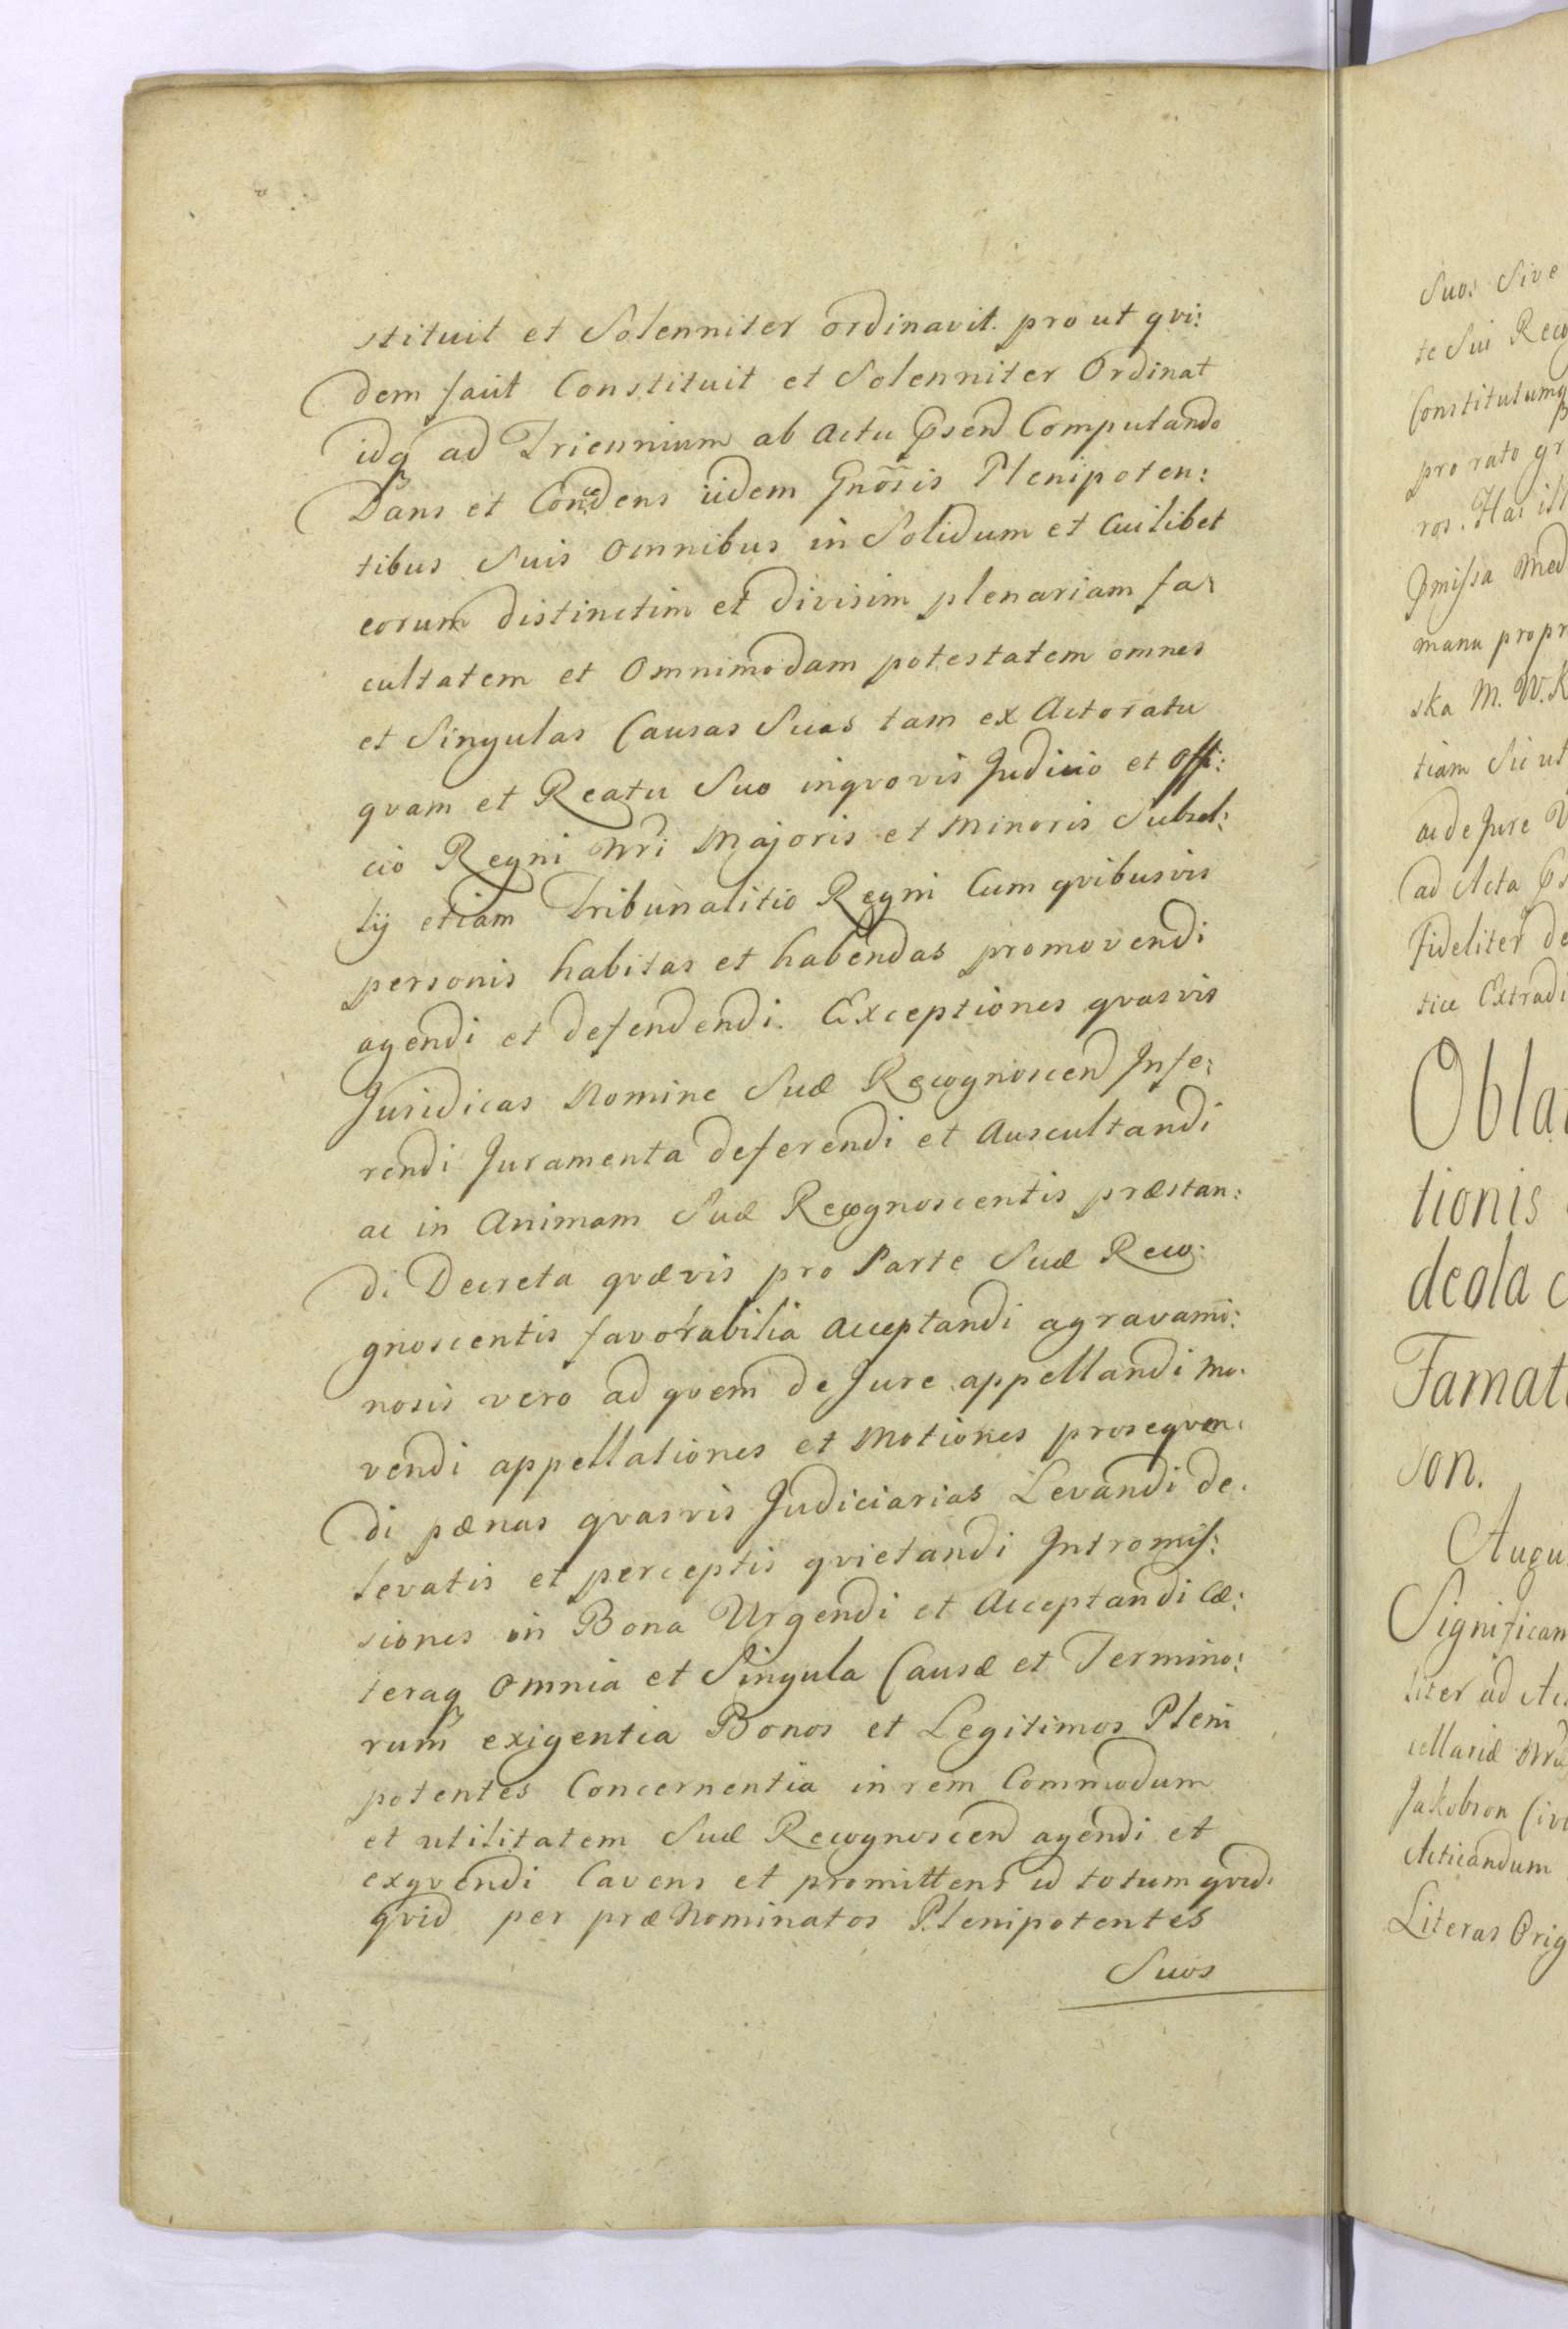 stituit et Solenniter ordinavit. pro ut qvi:
dem facit Constituit et Solenniter Ordinat
idq ad Triennium ab Actu Psend Computando
Dans et Concedens iidem Gnosis Plenipoten:
tibus Suis Omnibus in Solidum et Cuilibet
eorum distinctim et divisim plenariam fa:
cultatem et Omnimodam potestatem omnes
et Singulas Causas Suas tam ex Actoratu
qvam et Reatu Suo inqvovis Judicio et Offi:
cio Regni Nri Majoris et Minoris Subsel:
lij etiam Tribunalitio Regni Cum qvibusvis
personis habitas et habendas promovendi
agendi et defendendi. Exceptiones qvasvis
Juridicas Nomine Suæ Recognoscend Infe:
rendi Juramenta deferendi et Auscultandi
ac in Animam Suæ Recognoscentis præstan:
di Decreta qvævis pro Parte Suæ Reco:
gnoscentis favorabilia acceptandi agravami:
nosis vero ad qvem de Jure appellandi Mo:
vendi appellationes et Motiones proseqven:
di pænas qvasvis Judiciarias Levandi de:
levatis et perceptis qvietandi Intromis:
siones in Bona Urgendi et Acceptandi Cæ:
teraq Omnia et Singula Causæ et Termino:
rum exigentia Bonos et Legitimos Pleni
potentes Concernentia in rem Commodum
et utilitatem Suæ Recognoscend agendi et
exqvendi Cavens et promittens id totum qvid:
qvid per præNominatos Plenipotentes
Suos
Suos Sive
te Sui Reco
Constitutumq
pro rato gr
ros. Hac ist
Pmissa Med
manu propr
ska M. W. K
tiam Sic ut
ac de Jure V
ad Acta Ps
Fideliter de
tice Extradi
Obla
tionis
deola c
Famat
son.
Augu
Significam
liter ad Ac
cellariæ Nr
Jakobson Civ
Acticandum
Literas Orig